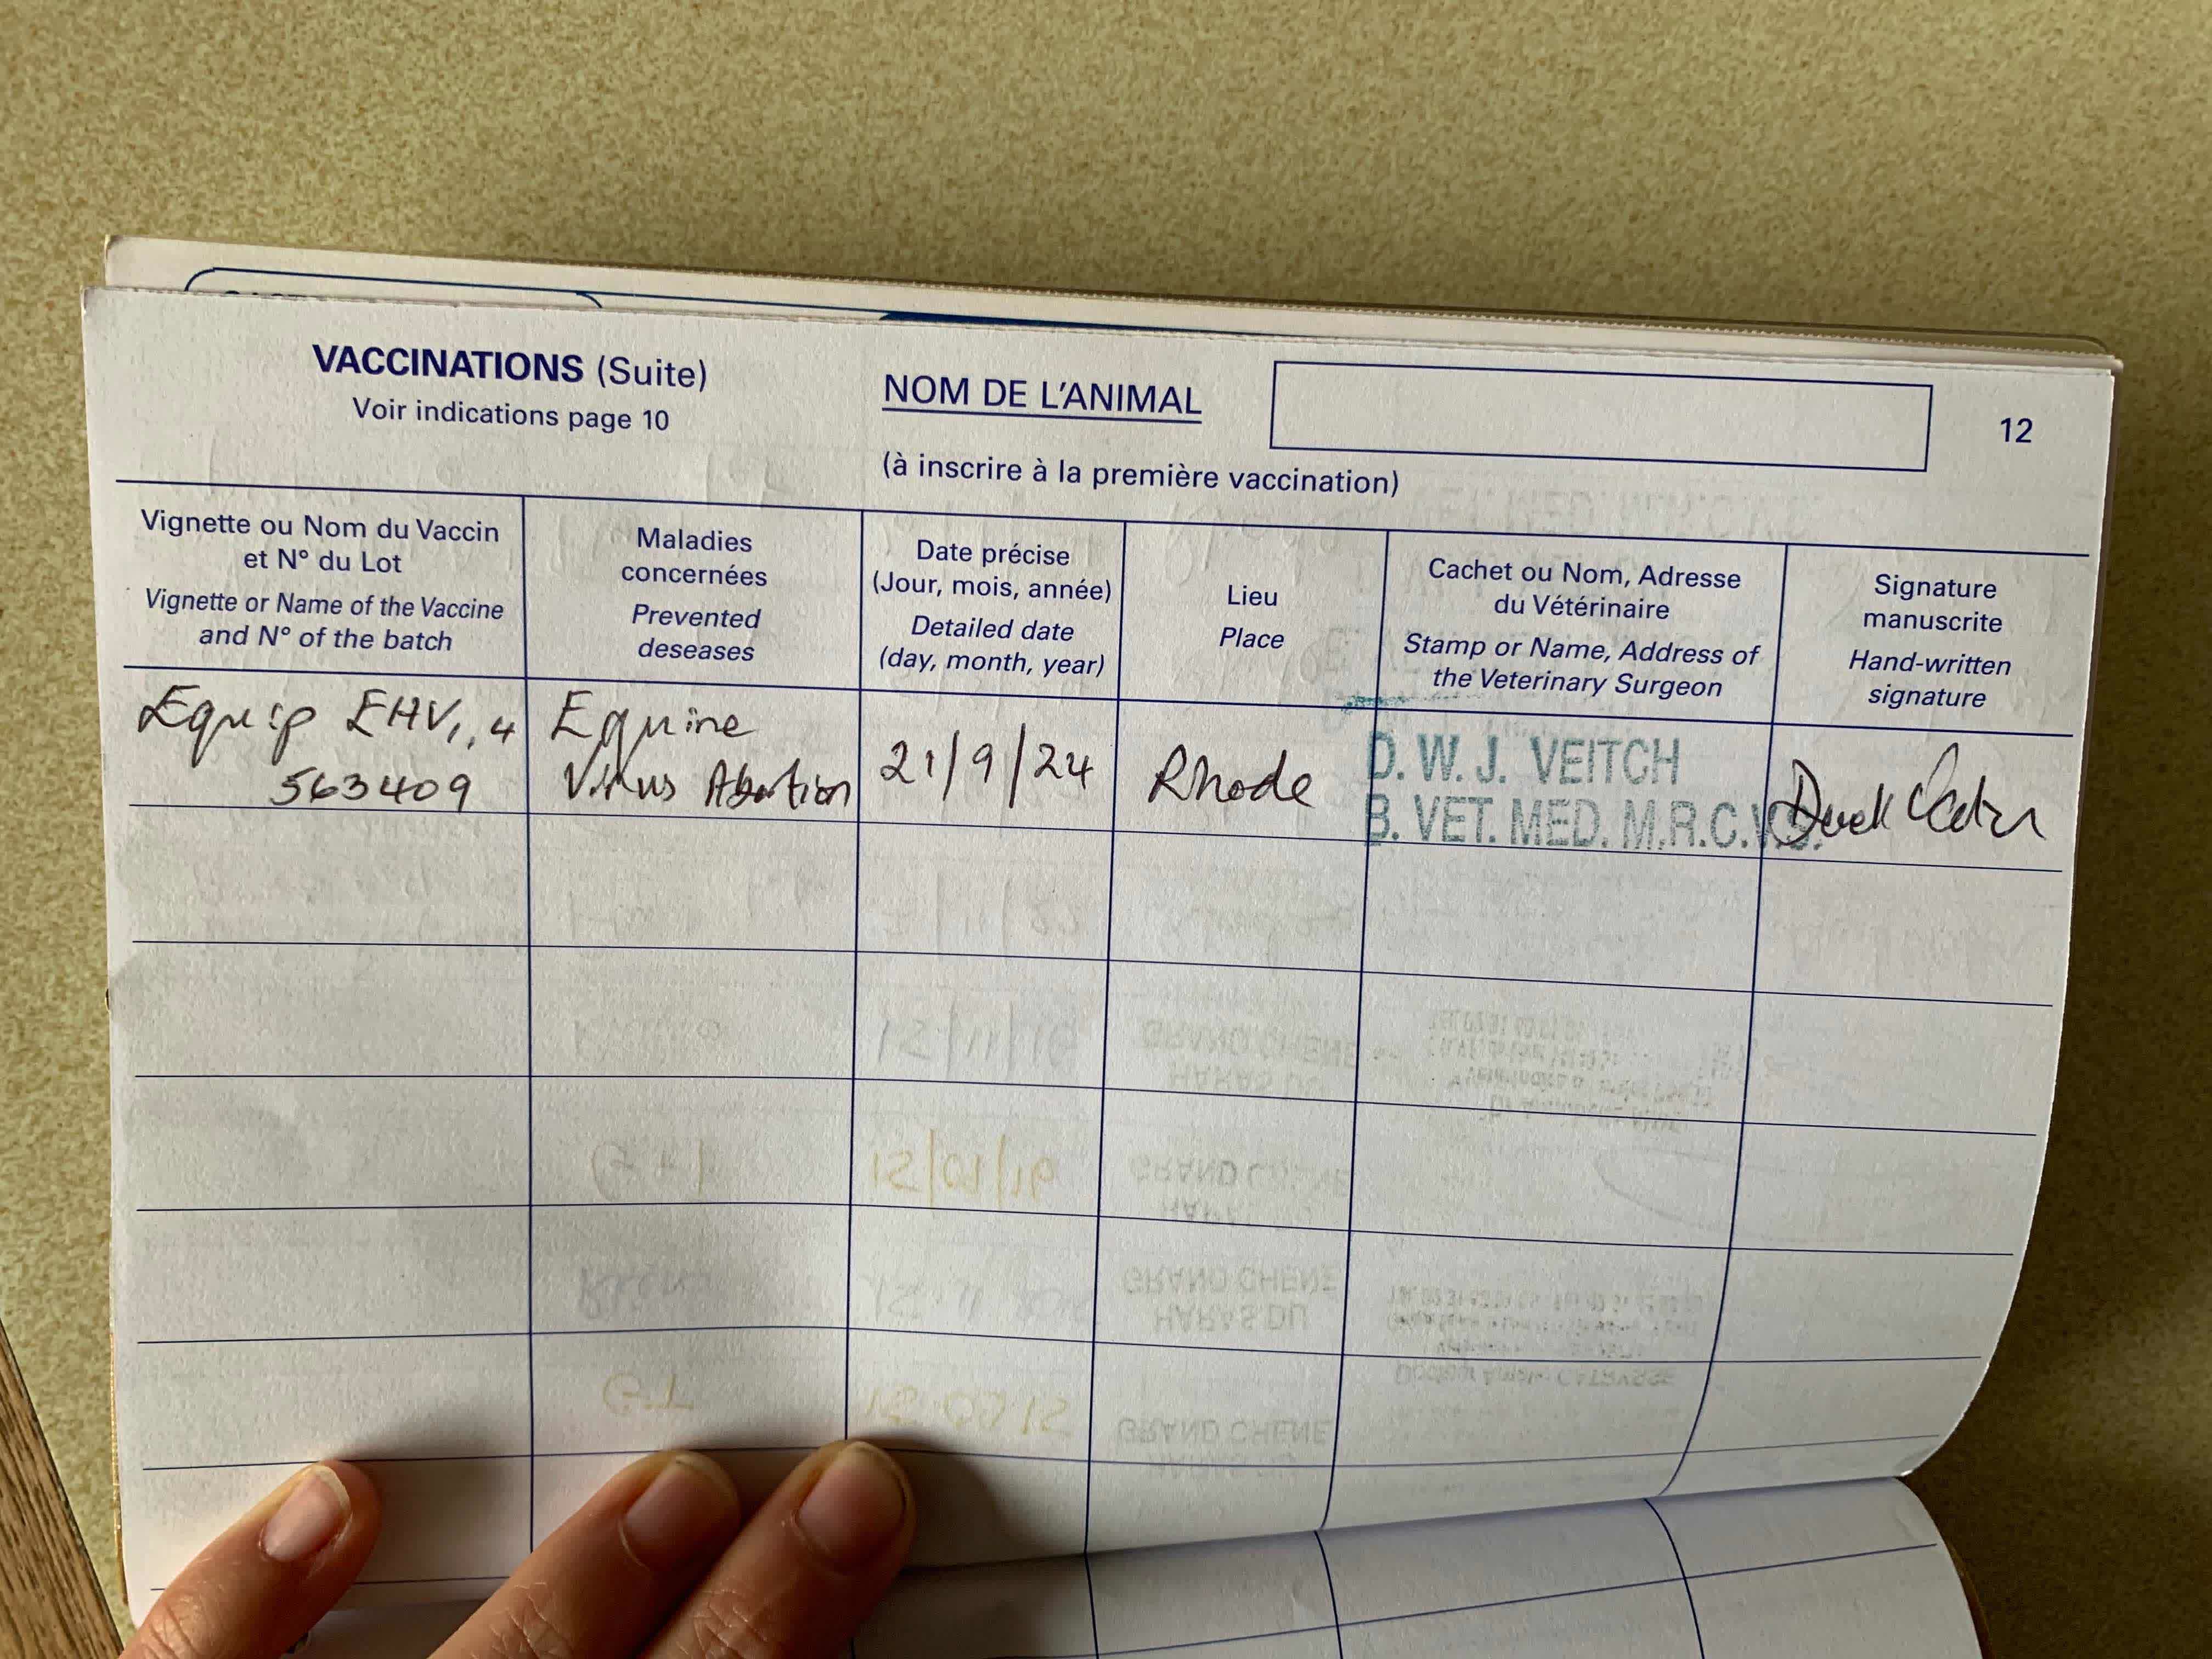 VACCINATIONS (Suite)
Voir indications page 10
NOM DE L'ANIMAL
12
(à inscrire à la première vaccination)
Vignette ou Nom du Vaccin
et N° du Lot
Vignette or Name of the Vaccine
and N° of the batch
Maladies
concernées
Prevented
deseases
Date précise
(Jour, mois, année)
Detailed date
(day, month, year)
Lieu
Place
Cachet ou Nom, Adresse
du Vétérinaire
Stamp or Name, Address of
the Veterinary Surgeon
Signature
manuscrite
Hand-written
signature
Equip EHV1,4
563409
Equine
Virus Abortion
21/9/24
Rhode
D. W. J. VEITCH
B. VET. MED. M.R.C.V.S.